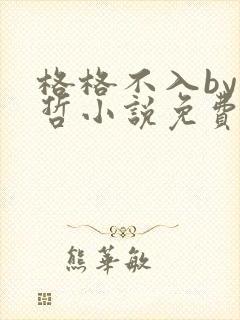 格格不入by
哲小說免費
熊華敏